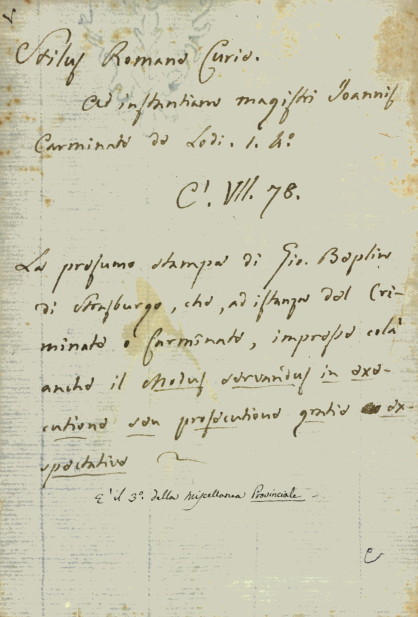 Stilus Romane Curie.
Ad instantiam magistri Joannis
Carminate de Lodi. 1. 4.º
C'. VII. 78.
La presumo stampa di Gio. Beplin
di Strasburgo, che, ad istanza del Cri-
minate o Carminate, impresse colà
anche il Modus servandus in exe-
cutione seu prosecutione gratie ex-
spectative
E' il 3º. della Miscellanea Provinciale